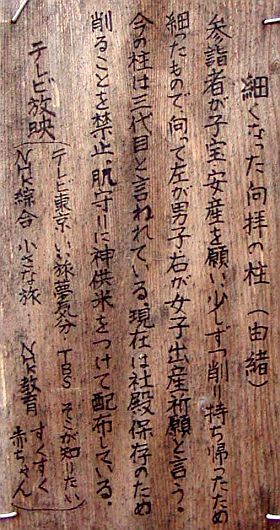 細くなった向拝の柱（由緒）
参詣者が子宝・安産を願い少しずつ削り持ち帰ったため
細ったもので向って左が男子右が女子出産祈願と言う。
今の柱は三代目と言われている。現在は社殿保存のため
削ることを禁止、肌守りに神供米をつけて配布している。
テレビ放映
テレビ東京 いい旅夢気分・TBS そこが知りたい
NHK綜合 小さな旅 NHK教育 すくすく
赤ちゃん